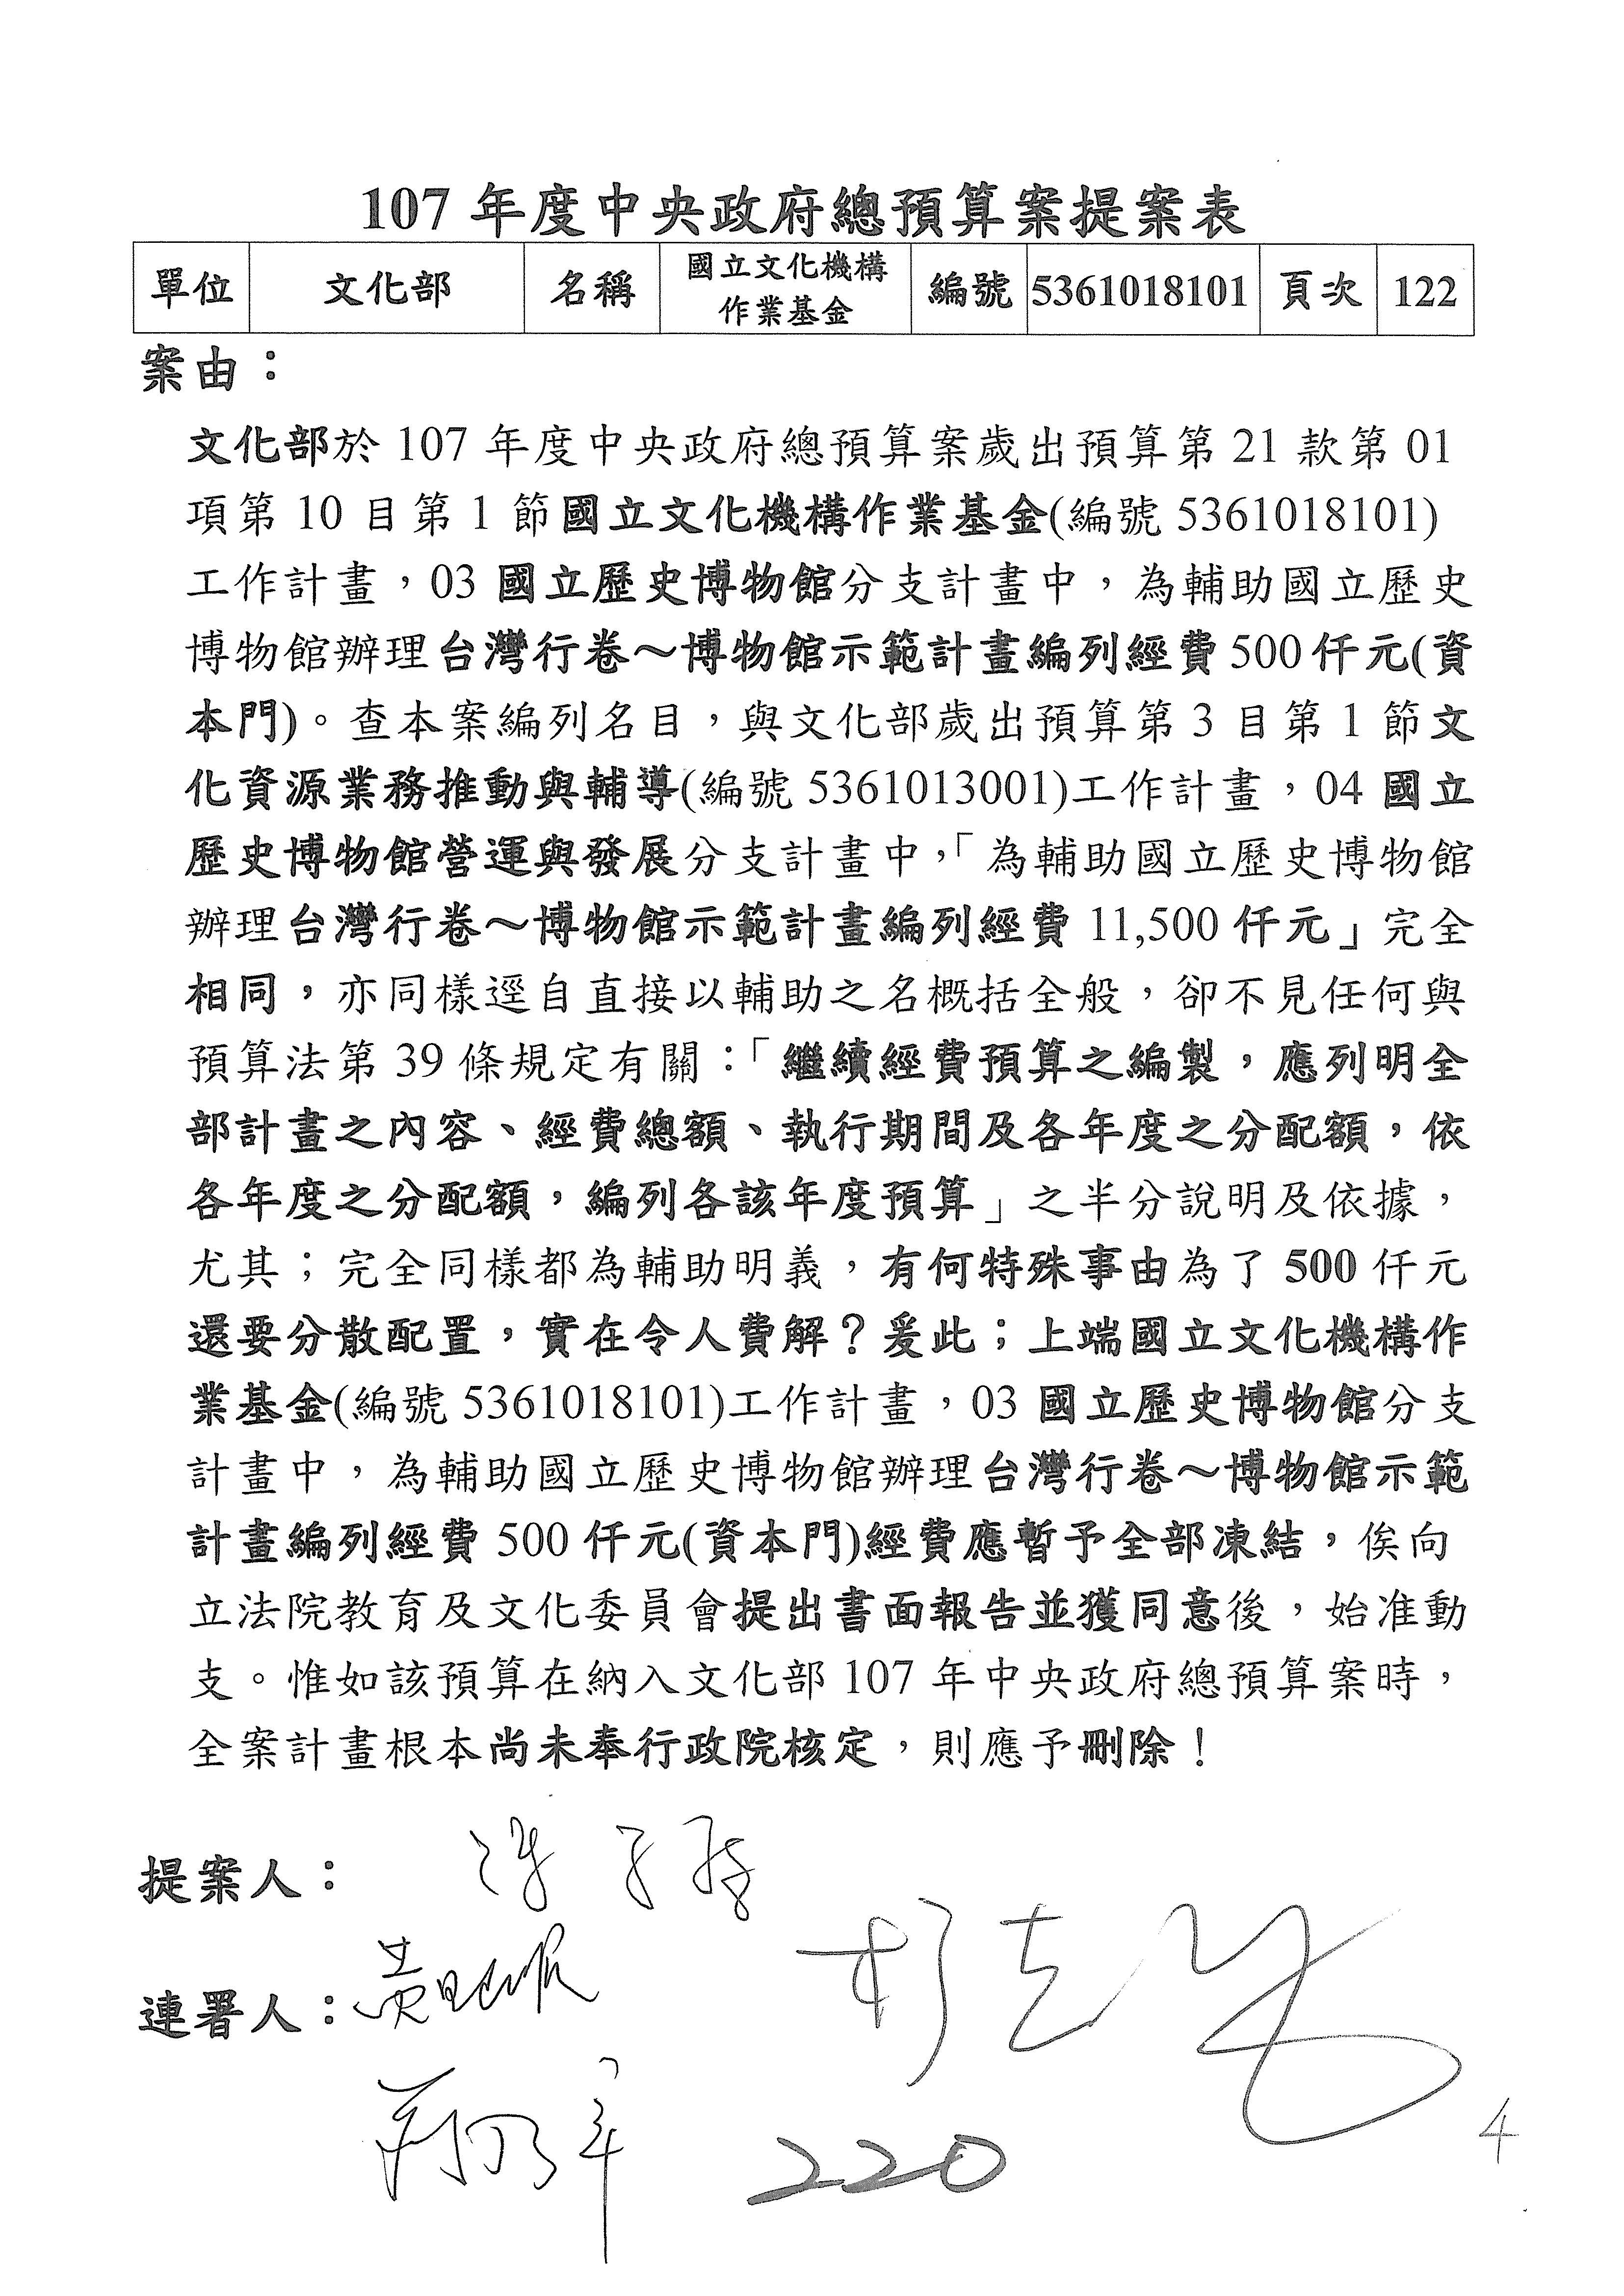 107 年度中央政府總預算案提案表
單位 文化部 名稱 國立文化機構作業基金 編號 5361018101 頁次 122
案由：
文化部於 107 年度中央政府總預算案歲出預算第 21 款第 01
項第 10 目第 1 節國立文化機構作業基金(編號 5361018101)
工作計畫，03 國立歷史博物館分支計畫中，為輔助國立歷史
博物館辦理台灣行卷～博物館示範計畫編列經費 500 仟元(資
本門)。查本案編列名目，與文化部歲出預算第 3 目第 1 節文
化資源業務推動與輔導(編號 5361013001)工作計畫，04 國立
歷史博物館營運與發展分支計畫中，「為輔助國立歷史博物館
辦理台灣行卷～博物館示範計畫編列經費 11,500 仟元」完全
相同，亦同樣逕自直接以輔助之名概括全般，卻不見任何與
預算法第 39 條規定有關：「繼續經費預算之編製，應列明全
部計畫之內容、經費總額、執行期間及各年度之分配額，依
各年度之分配額，編列各該年度預算」之半分說明及依據，
尤其；完全同樣都為輔助明義，有何特殊事由為了 500 仟元
還要分散配置，實在令人費解？爰此；上端國立文化機構作
業基金(編號 5361018101)工作計畫，03 國立歷史博物館分支
計畫中，為輔助國立歷史博物館辦理台灣行卷～博物館示範
計畫編列經費 500 仟元(資本門)經費應暫予全部凍結，俟向
立法院教育及文化委員會提出書面報告並獲同意後，始准動
支。惟如該預算在納入文化部 107 年中央政府總預算案時，
全案計畫根本尚未奉行政院核定，則應予刪除！
提案人：
連署人：
220
4